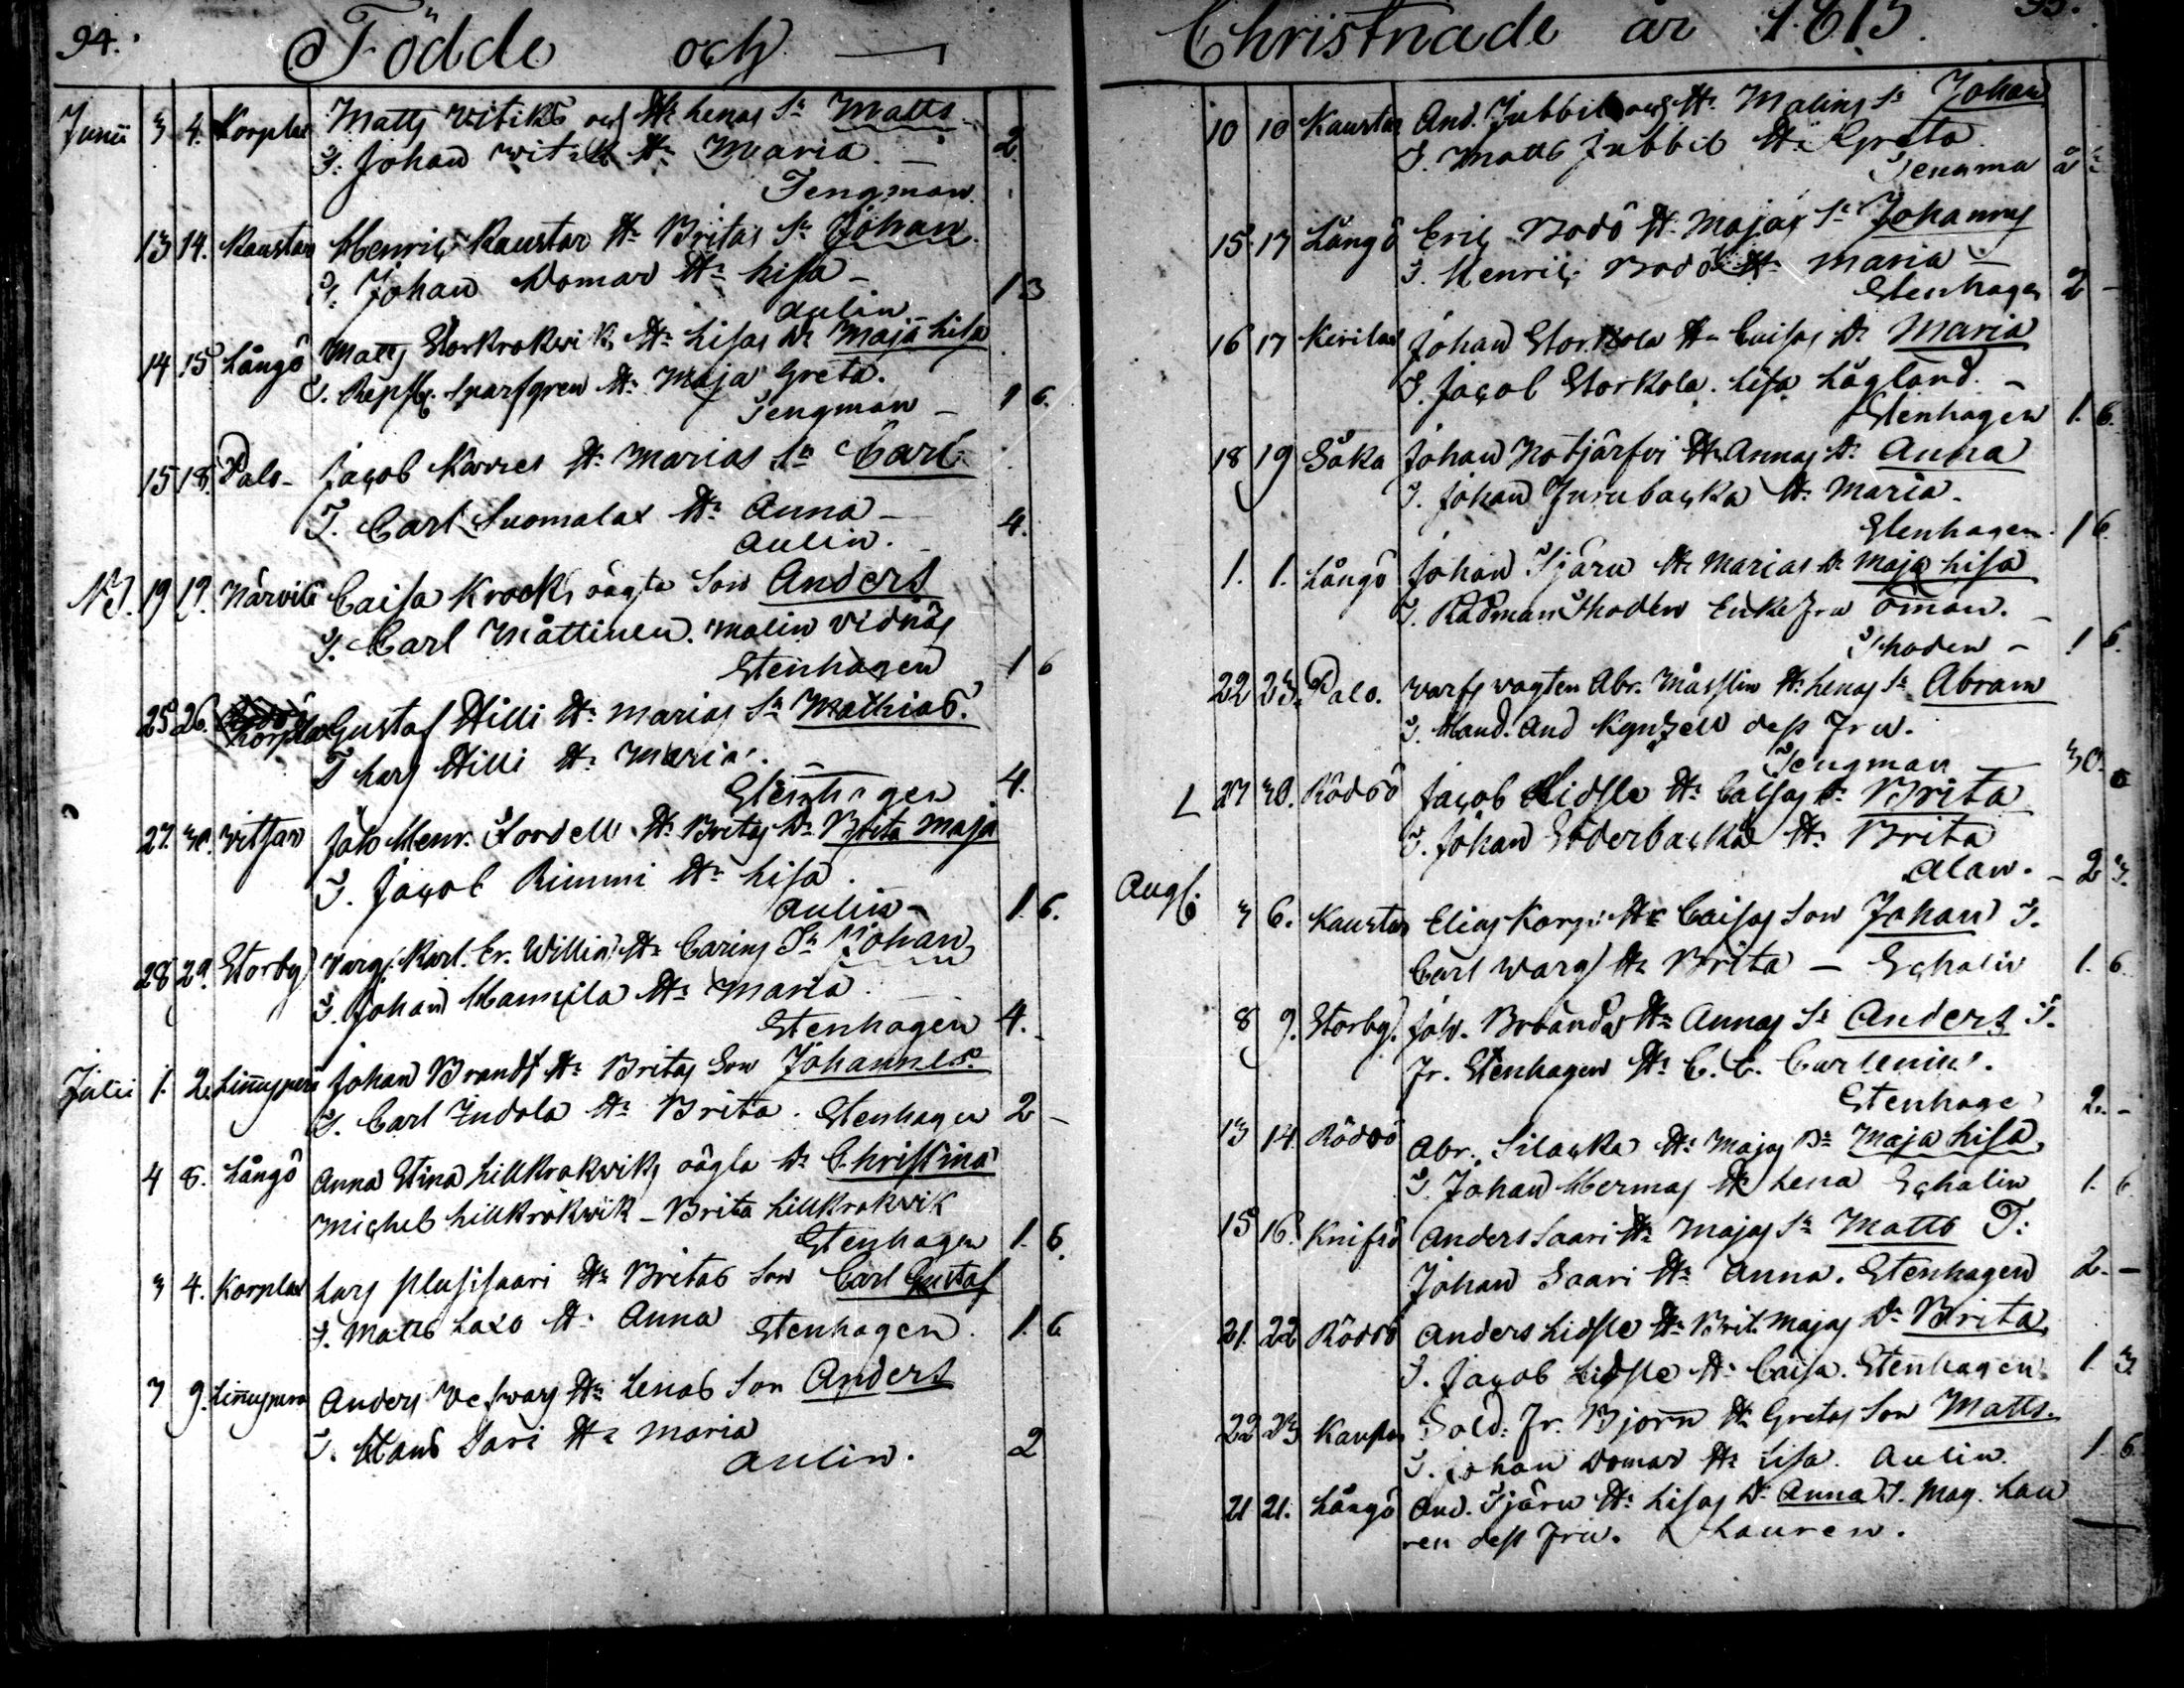 94. Födde och
Junii 3 4. Korplax Matts Witiks och H: Lenas S: Matts
T. Johan Witick H: Maria. — 2.
Tengman.
13 14. Kaustar Henric Kaustar H: Britas S: Johan
T. Johan Domar H: Lisa —
Aulin — 13
14 15 Långö Matts Storkrokwiks H: Lisas D: Maja Lisa
T. Sparfgren H: Maja Greta.
Tengman — 1 6.
15 18. Palo Jacob Kårres H: Marias S: Carl
T. Carl Suomalax H: Anna — 4.
Aulin.
19 19. Närvilä Caisa Krocks oägta Son Anders
T. Carl Måttinen. Malin Vidnäs
Stenhagen 1 6
25 26. Korplax Gustaf Hilli H: Marias S: Mathias.
T Lars Hilli H: Maria.
Stenhagen 4.
27. 30. Vitsar Joh Henr. Fordell H: Britas D: Brita Maja
T. Jacob Rimmi H: Lisa.
Aulin — 1. 6.
28 29. Storby Varfs Karl. Er. Willin H: Carins S: Johan
T. Johan Mannila H: Maria.
Stenhagen 4.
Julii 1. 2. Linnusperä Johan Brandt H: Britas Son Johannes.
T. Carl Indola H: Brita. Stenhagen 2 —
4 8. Långö Anna Stina Lillkrokwiks oägta D: Christina
Michel Lillkrokwik — Brita Lillkrokvik
Stenhagen 1. 6.
3 4. Korplax Lars Plusisaari H: Britas Son Carl Gustaf
T. Matts Laxo H: Anna Stenhagen. 1. 6
7 9. Linnuspera Anders H: Lenas Son Anders
T. Hans Sari H: Maria
Aulin. 2
Christnade år 1815. 95.
10 10 Kaustar And. Jubbil och H: Malins S: Johan
T. Matts Jubbil H: Greta.
Tengma 2
15 17 Långö Eric Bodö H: Majas S: Johannes
T. Henric Bodö H: Maria —
Stenhagen 2 —
16 17 Kivilax Johan Storkola H: Caisas D: Maria
T. Jacob Storkola. Lisa Högland. —
Stenhagen 1. 6.
18 19 Såka Johan Notjärfvi H: Annas D: Anna
T. Johan Furubacka H: Maria.
Stenhagen. 1 6.
1. 1. Långö Johan Tjäru H: Marias D: Maja Lisa
T. Rådman Thodén Enke Fru Öman.
Thodén — 1 6.
22 23. Palo. Varfs vagten Abr. Måsslin H: Lenas S: Abram
T. Hand. And Kyntzell dess Fru.
Tengman — 30.
L 27 30. Rödsö Jacob Lidsle H: Caisas D: Brita
T. Johan Söderbacka H: Brita
Alan. — 2 3.
Aug. 3 6. Kaustar Elias Korpi H: Caisas Son Johan T.
Carl Warg H: Brita — Echalin 1. 6.
8 9. Storby. Joh. Broända H: Annas S: Anders T.
Fr. Stenhagen H: C. C. Carlenius.
Stenhage 2. —
13 14. Rödsö Abr. Silacka H: Majas D: Maja Lisa
T. Johan Hermas H: Lena Echalin 1. 6.
15 16. Knifsö Anders Saari H: Majas S: Matts T:
Johan Saari H: Anna. Stenhagen 2. —
21. 22 Rödsö Anders Lidsle H: Brit. Majas D: Brita
T. Jacob Lidsle H: Caisa. Stenhagen. 1. 3.
22 23 Kaustar Sold. Fr. Björn H: Gretas Son Matts.
T. Johan Domar H: Lisa. Aulin. 1. 6
21 21. Långö And. Tjäru H: Lisas D: Anna T. Mag. Lau
ren dess Fru. Lauren. —